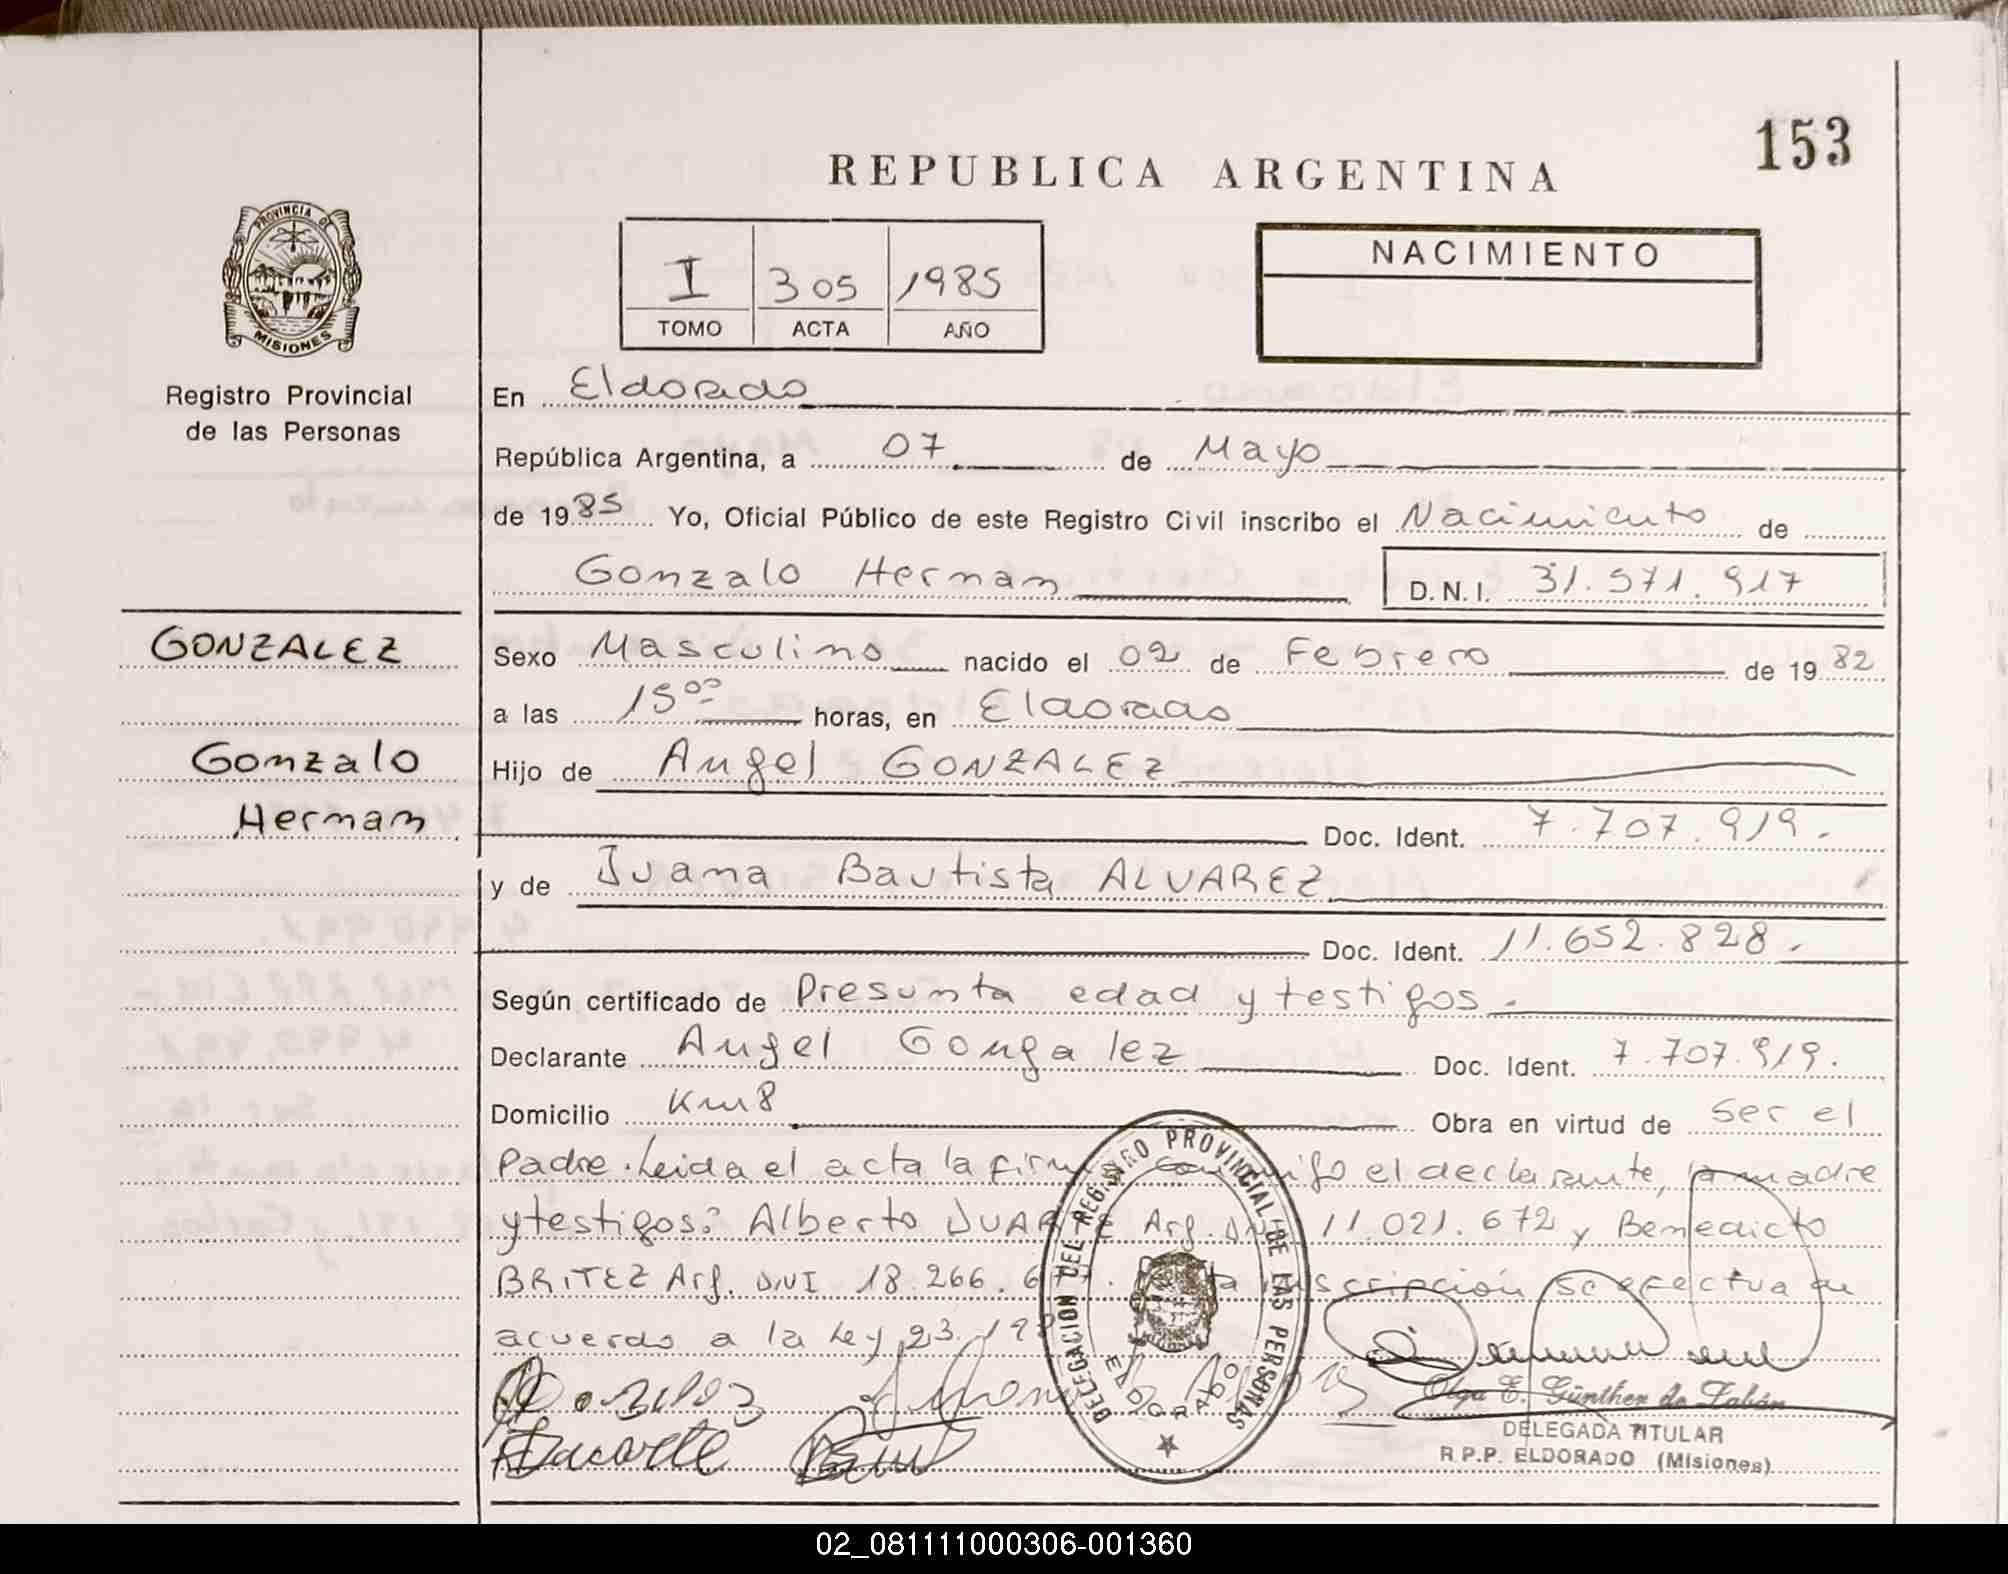 153
REPUBLICA ARGENTINA
PROVINCIA DE
MISIONES
Registro Provincial
de las Personas
I 305 1985
TOMO ACTA AÑO
NACIMIENTO
En Eldorado
República Argentina, a 07 de Mayo
de 1985 Yo, Oficial Público de este Registro Civil inscribo el Nacimiento de
Gonzalo Hernan D.N.I. 31.571.917
GONZALEZ
Gonzalo
Hernan
Sexo Masculino nacido el 02 de Febrero de 1982
a las 15 00 horas, en Eldorado
Hijo de Angel GONZALEZ
Doc. Ident. 7.707.919.
y de Juana Bautista ALVAREZ
Doc. Ident. 11.652.828.
Según certificado de Presunta edad y testigos.
Declarante Angel Gonzalez Doc. Ident. 7.707.919.
Domicilio Km 8 Obra en virtud de Ser el
Padre. Leida el acta la firma conmigo el declarante, la madre
y testigos: Alberto DUARTE Arg. DNI 11.021.672 y Benedicto
BRITEZ Arg. DNI 18.266. inscripción se efectua de
acuerdo a la Ley 23.
DELEGACION DEL REGISTRO PROVINCIAL DE LAS PERSONAS
ELDORADO
Olga E. Günther de Zabán
DELEGADA TITULAR
R.P.P. ELDORADO (Misiones)
02_081111000306-001360